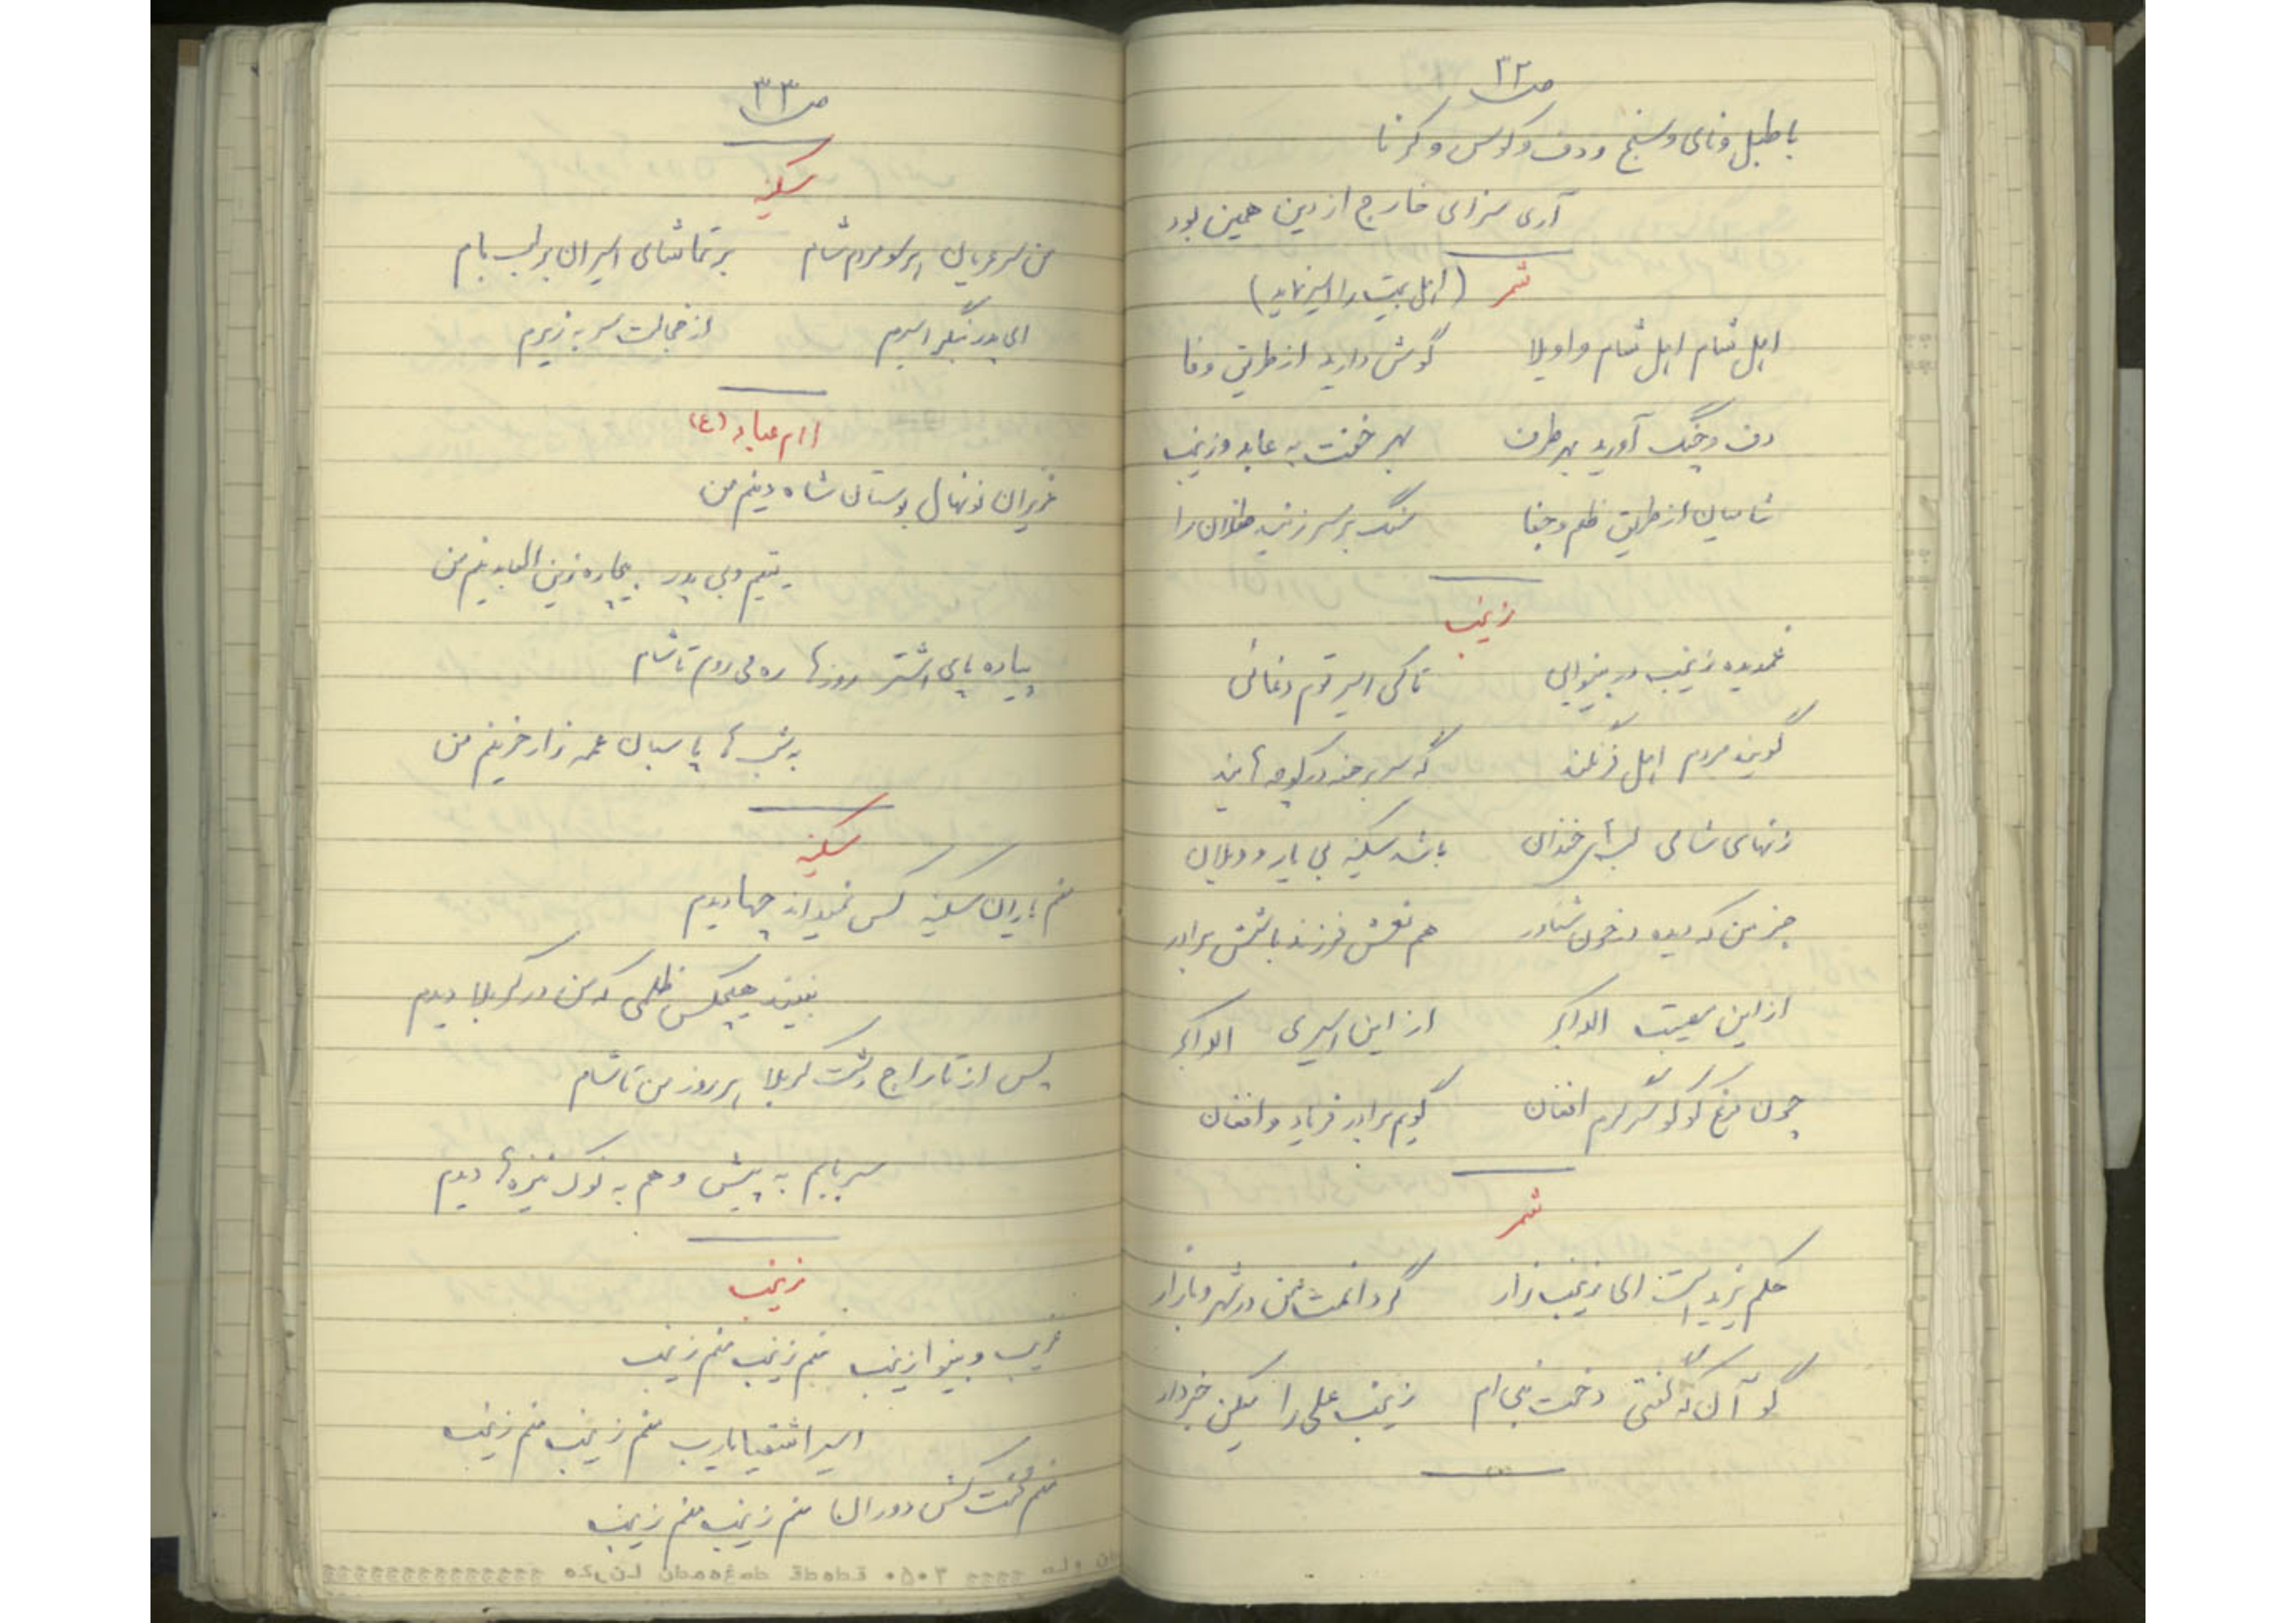 ص ۳۲
با طبل و نای و سنج و دف و کوس و کرنا
آری سزای خارج از دین همین بود
شمر (اهل بیت را اسیر نماید)
اهل شام اهل شام واویلا گوش دارید از طریق وفا
دف و چنگ آورید بهر طرف بهر خفت به عابد و زینب
شامیان از طریق ظلم و جفا سنگ بر سر زنید طفلان را
زینب
غمدیده زینب در بینوایی تا کی اسیر قوم دغائی
گویند مردم اهل فرنگند که سر برهنه در کوچه آیند
زنهای شامی لبها خندان باشد سکینه بی یار و ویلان
جز من که دیده در خون شناور هم نعش فرزند با نعش برادر
از این مصیبت الله اکبر از این اسیری الله اکبر
چون مرغ کوکو سر کرم افغان گویم برادر فریاد و افغان
شمر
حکم یزید است ای زینب زار گردانمتشان در شهر و بازار
گو آن که گفتی دخت نبی ام زینب علی را میکن خبردار
ص ۳۳
سکینه
من سر عریان بر سر مردم شام بر تماشای اسیران بر لب بام
ای پدر بنگر اسیرم از خجالت سر به زیرم
امام عباد (ع)
عزیزان نونهال بوستان شاه دینم من
یتیم و بی پدر بیچاره زین العابدینم من
پیاده پای اشتر روزها ره می روم تا شام
به شب ها پاسبان عمه زار حزینم من
سکینه
منم یاران سکینه کس نمیداند چها دیدم
نبیند هیچکس ظلمی که من در کربلا دیدم
پس از تاراج دشت کربلا هر روز من تا شام
سر بابم به پیش و هم به نوک نیزه ها دیدم
زینب
غریب و بینوا زینب منم زینب منم زینب
اسیر اشقیا یارب منم زینب منم زینب
منم محنت کش دوران منم زینب منم زینب